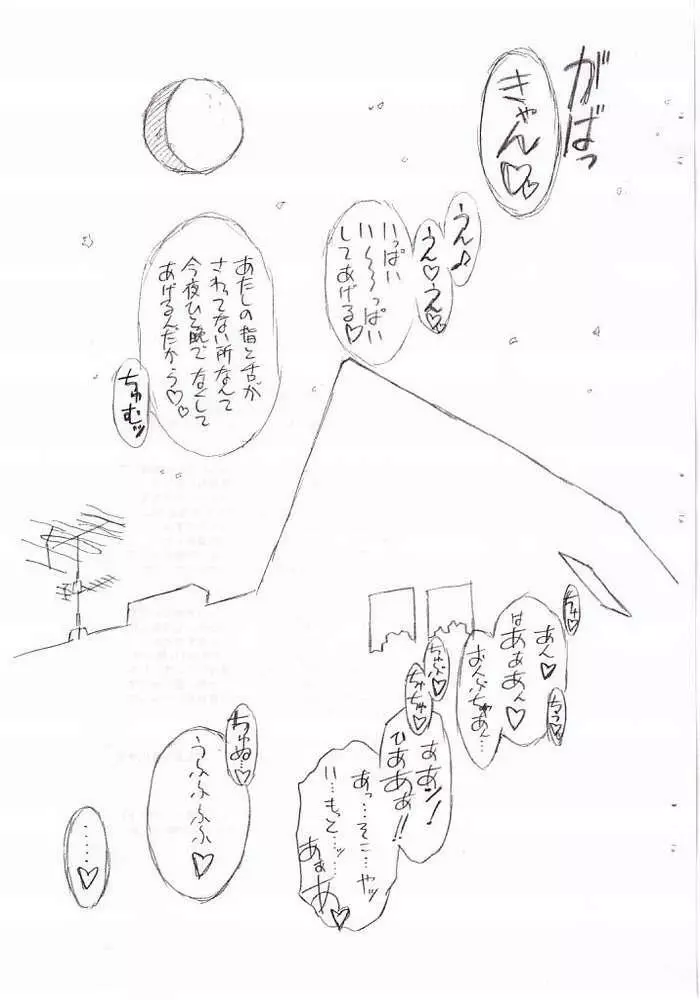 がばっ
きゃん♡♡
うん♪
うん♡うん♡
いっぱい
い〜〜〜っぱい
してあげる♡
あたしの指と舌が
さわってない所なんて
今夜ひと晩で なくして
あげるんだから♡♡
ちゅむッ
ちゅ♡
あん♡
はあぁあん♡
おんぶちゃあん…
ちう♡
ちゅぷ♡
ちゅちゅ♡
ああン!
ひああぁ!!
あっ…そこ…やッ
い…もっと…ッ…
あぁあ♡
ちゅぬ…♡
うふふふふ♡
……♡